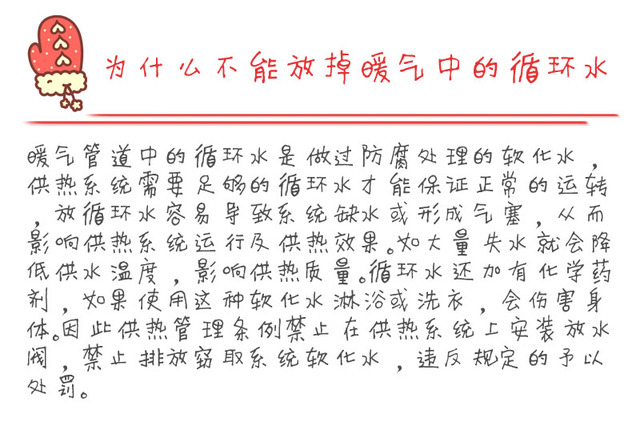 为什么不能放掉暖气中的循环水
暖气管道中的循环水是做过防腐处理的软化水，
供热系统需要足够的循环水才能保证正常的运转
，放循环水容易导致系统缺水或形成气塞，从而
影响供热系统运行及供热效果。如大量失水就会降
低供水温度，影响供热质量。循环水还加有化学药
剂，如果使用这种软化水淋浴或洗衣，会伤害身
体。因此供热管理条例禁止在供热系统上安装放水
阀，禁止排放窃取系统软化水，违反规定的予以
处罚。